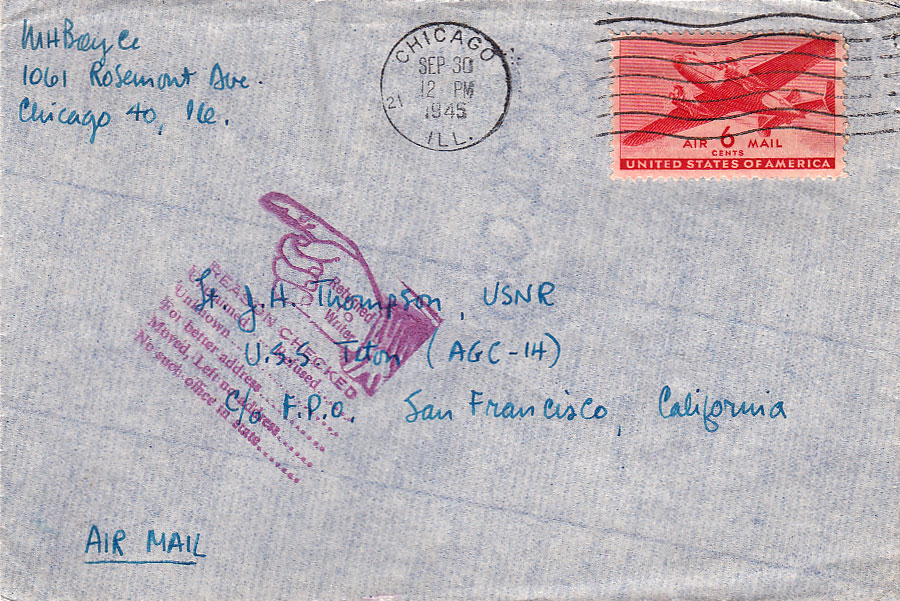 MHBoyce
1061 Rosemont Ave.
Chicago 40, Ill.
CHICAGO
SEP 30
12 PM
1945
21
ILL.
AIR 6 MAIL
CENTS
UNITED STATES OF AMERICA
Returned
TO
Writer
REASON CHECKED
Unclaimed Refused
Unknown
For better address
Moved, Left no address
No such office in state
Lt. J.H. Thompson, USNR
U.S.S Teton (AGC-14)
c/o F.P.O. San Francisco, California
AIR MAIL